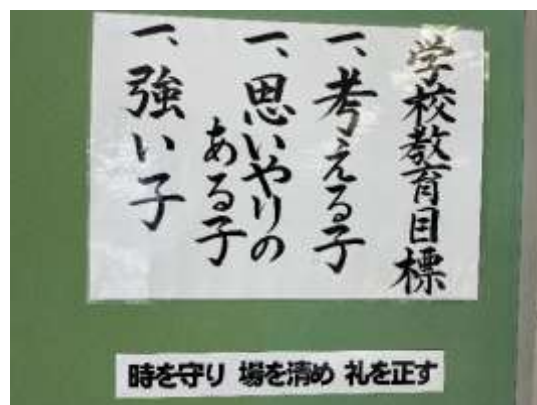 学校教育目標
一、考える子
一、思いやりの
ある子
一、強い子
時を守り 場を清め 礼を正す